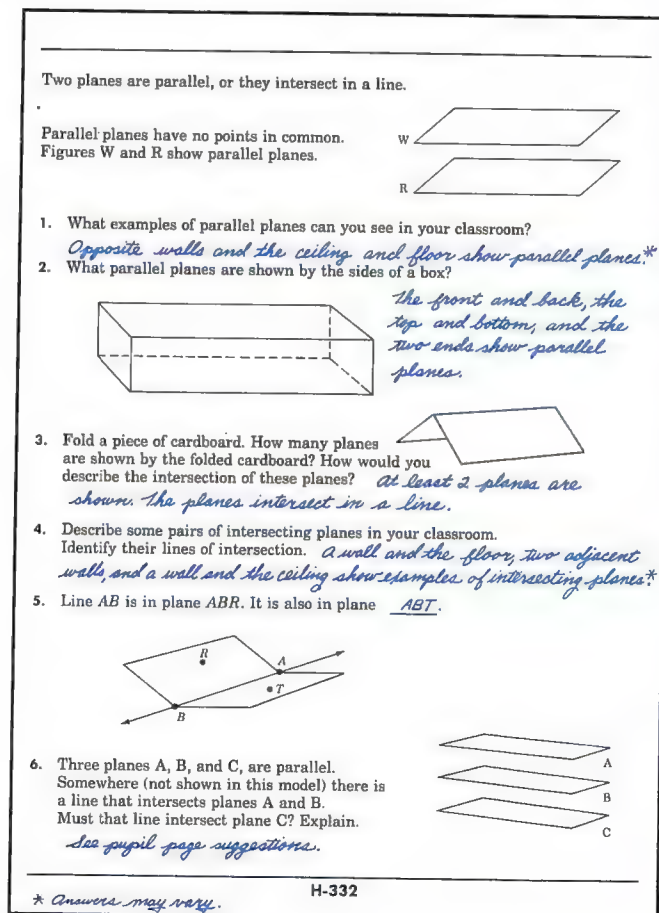 Two planes are parallel, or they intersect in a line.
Parallel planes have no points in common.
Figures W and R show parallel planes.
W
R
1. What examples of parallel planes can you see in your classroom?
Opposite walls and the ceiling and floor show parallel planes.*
2. What parallel planes are shown by the sides of a box?
The front and back, the
top and bottom, and the
two ends show parallel
planes.
3. Fold a piece of cardboard. How many planes
are shown by the folded cardboard? How would you
describe the intersection of these planes? At least 2 planes are
shown. The planes intersect in a line.
4. Describe some pairs of intersecting planes in your classroom.
Identify their lines of intersection. A wall and the floor, two adjacent
walls, and a wall and the ceiling show examples of intersecting planes.*
5. Line AB is in plane ABR. It is also in plane ABT.
R
A
T
B
6. Three planes A, B, and C, are parallel.
Somewhere (not shown in this model) there is
a line that intersects planes A and B.
Must that line intersect plane C? Explain.
See pupil page suggestions.
A
B
C
H-332
* Answers may vary.